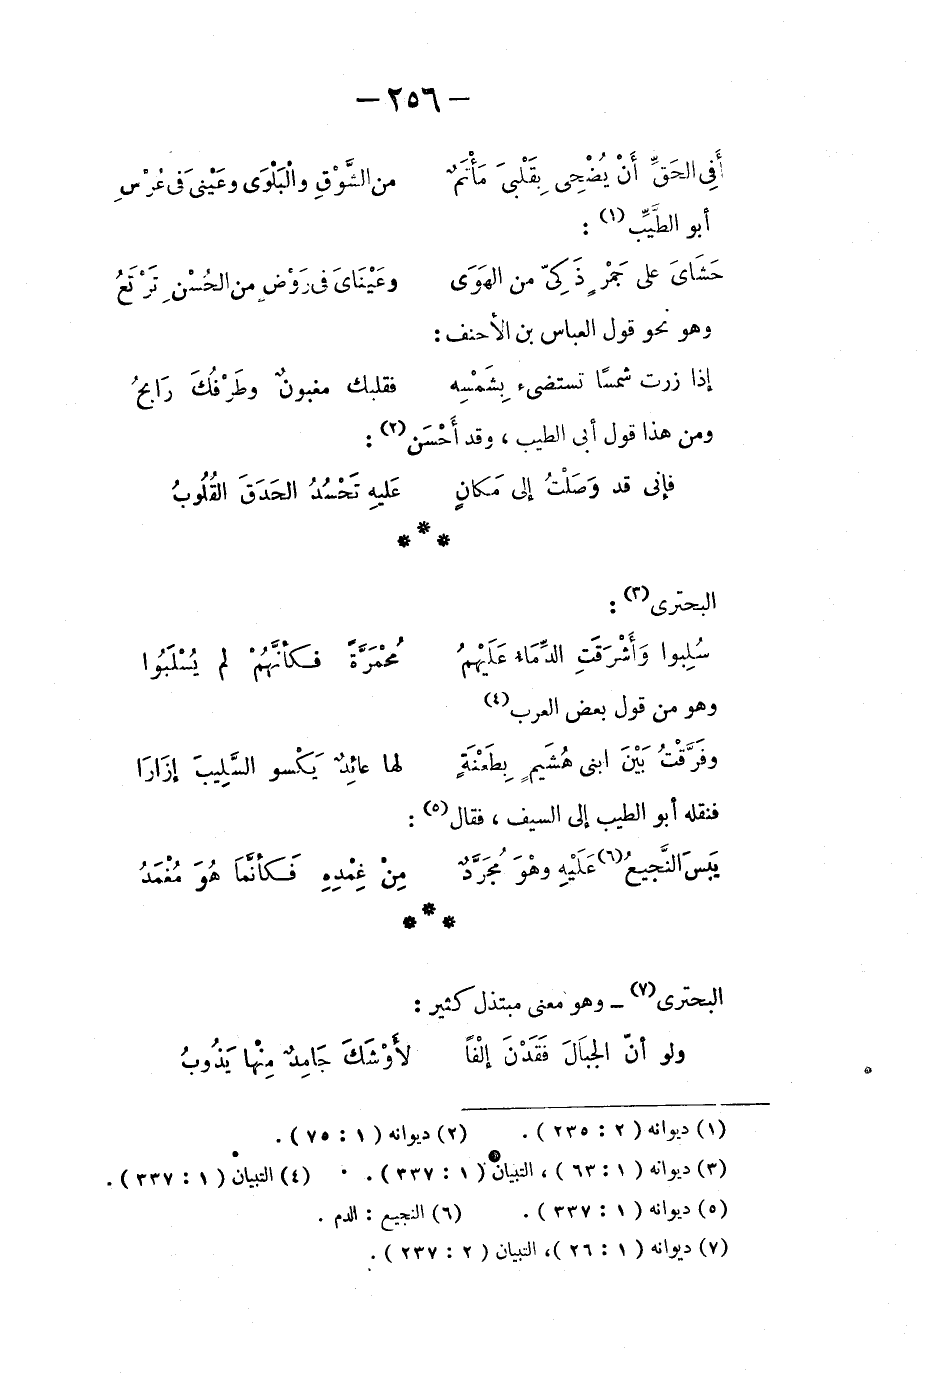 — ٢٥٦ —
أَفِى الحَقِّ أَنْ يُضْحِى بِقَلْبىَ مَأْتَمٌ من الشَّوْقِ والْبَلْوَى وعَيْنىَ فى عُرْسِ
أبو الطَّيِّب (١) :
حَشَاىَ على جَمْرٍ ذَكِىّ من الهَوَى وعَيْنَاىَ فى رَوْضٍ من الحُسْنِ تَرْتَعُ
وهو نحو قول العباس بن الأحنف :
إذا زرت شمسًا تستضىء بِشَمْسِه فقلبك مغبونٌ وطَرْفُكَ رَابحُ
ومن هذا قول أبى الطيب ، وقد أَحْسَن (٢) :
فإنى قد وَصَلْتُ إلى مَكانٍ عَليهِ تَحْسُدُ الحَدَقَ القُلُوبُ
* * *
البحترى (٣) :
سُلِبوا وَأَشْرَقَتِ الدِّمَاءُ عَلَيْهِمُ مُحْمَرَّةً فكأنَّهُمْ لم يُسْلَبُوا
وهو من قول بعض العرب (٤)
وفَرَّقْتُ بَيْنَ ابنى هُشَيمٍ بِطَعْنَةٍ لها عائِدٌ يَكْسو السَّلِيبَ إزَارَا
فنقله أبو الطيب إلى السيف ، فقال (٥) :
يَبَسَ النَّجيعُ (٦) عَلَيْهِ وهْوَ مُجَرَّدٌ مِنْ غِمْدِهِ فَكأنَّمَا هُوَ مُغْمَدُ
* * *
البحترى (٧) ــ وهو معنى مبتذل كثير :
ولو أنّ الجبَالَ فَقَدْنَ إلْفًا لأَوْشَكَ جَامِدٌ مِنْها يَذُوبُ
(١) ديوانه ( ٢ : ٢٣٥ ) . (٢) ديوانه ( ١ : ٧٥ ) .
(٣) ديوانه ( ١ : ٦٣ ) ، التبيان ( ١ : ٣٣٧ ) . (٤) التبيان ( ١ : ٣٣٧ ) .
(٥) ديوانه ( ١ : ٣٣٧ ) . (٦) النجيع : الدم .
(٧) ديوانه ( ١ : ٢٦ )، التبيان ( ٢ : ٢٣٧ ) .